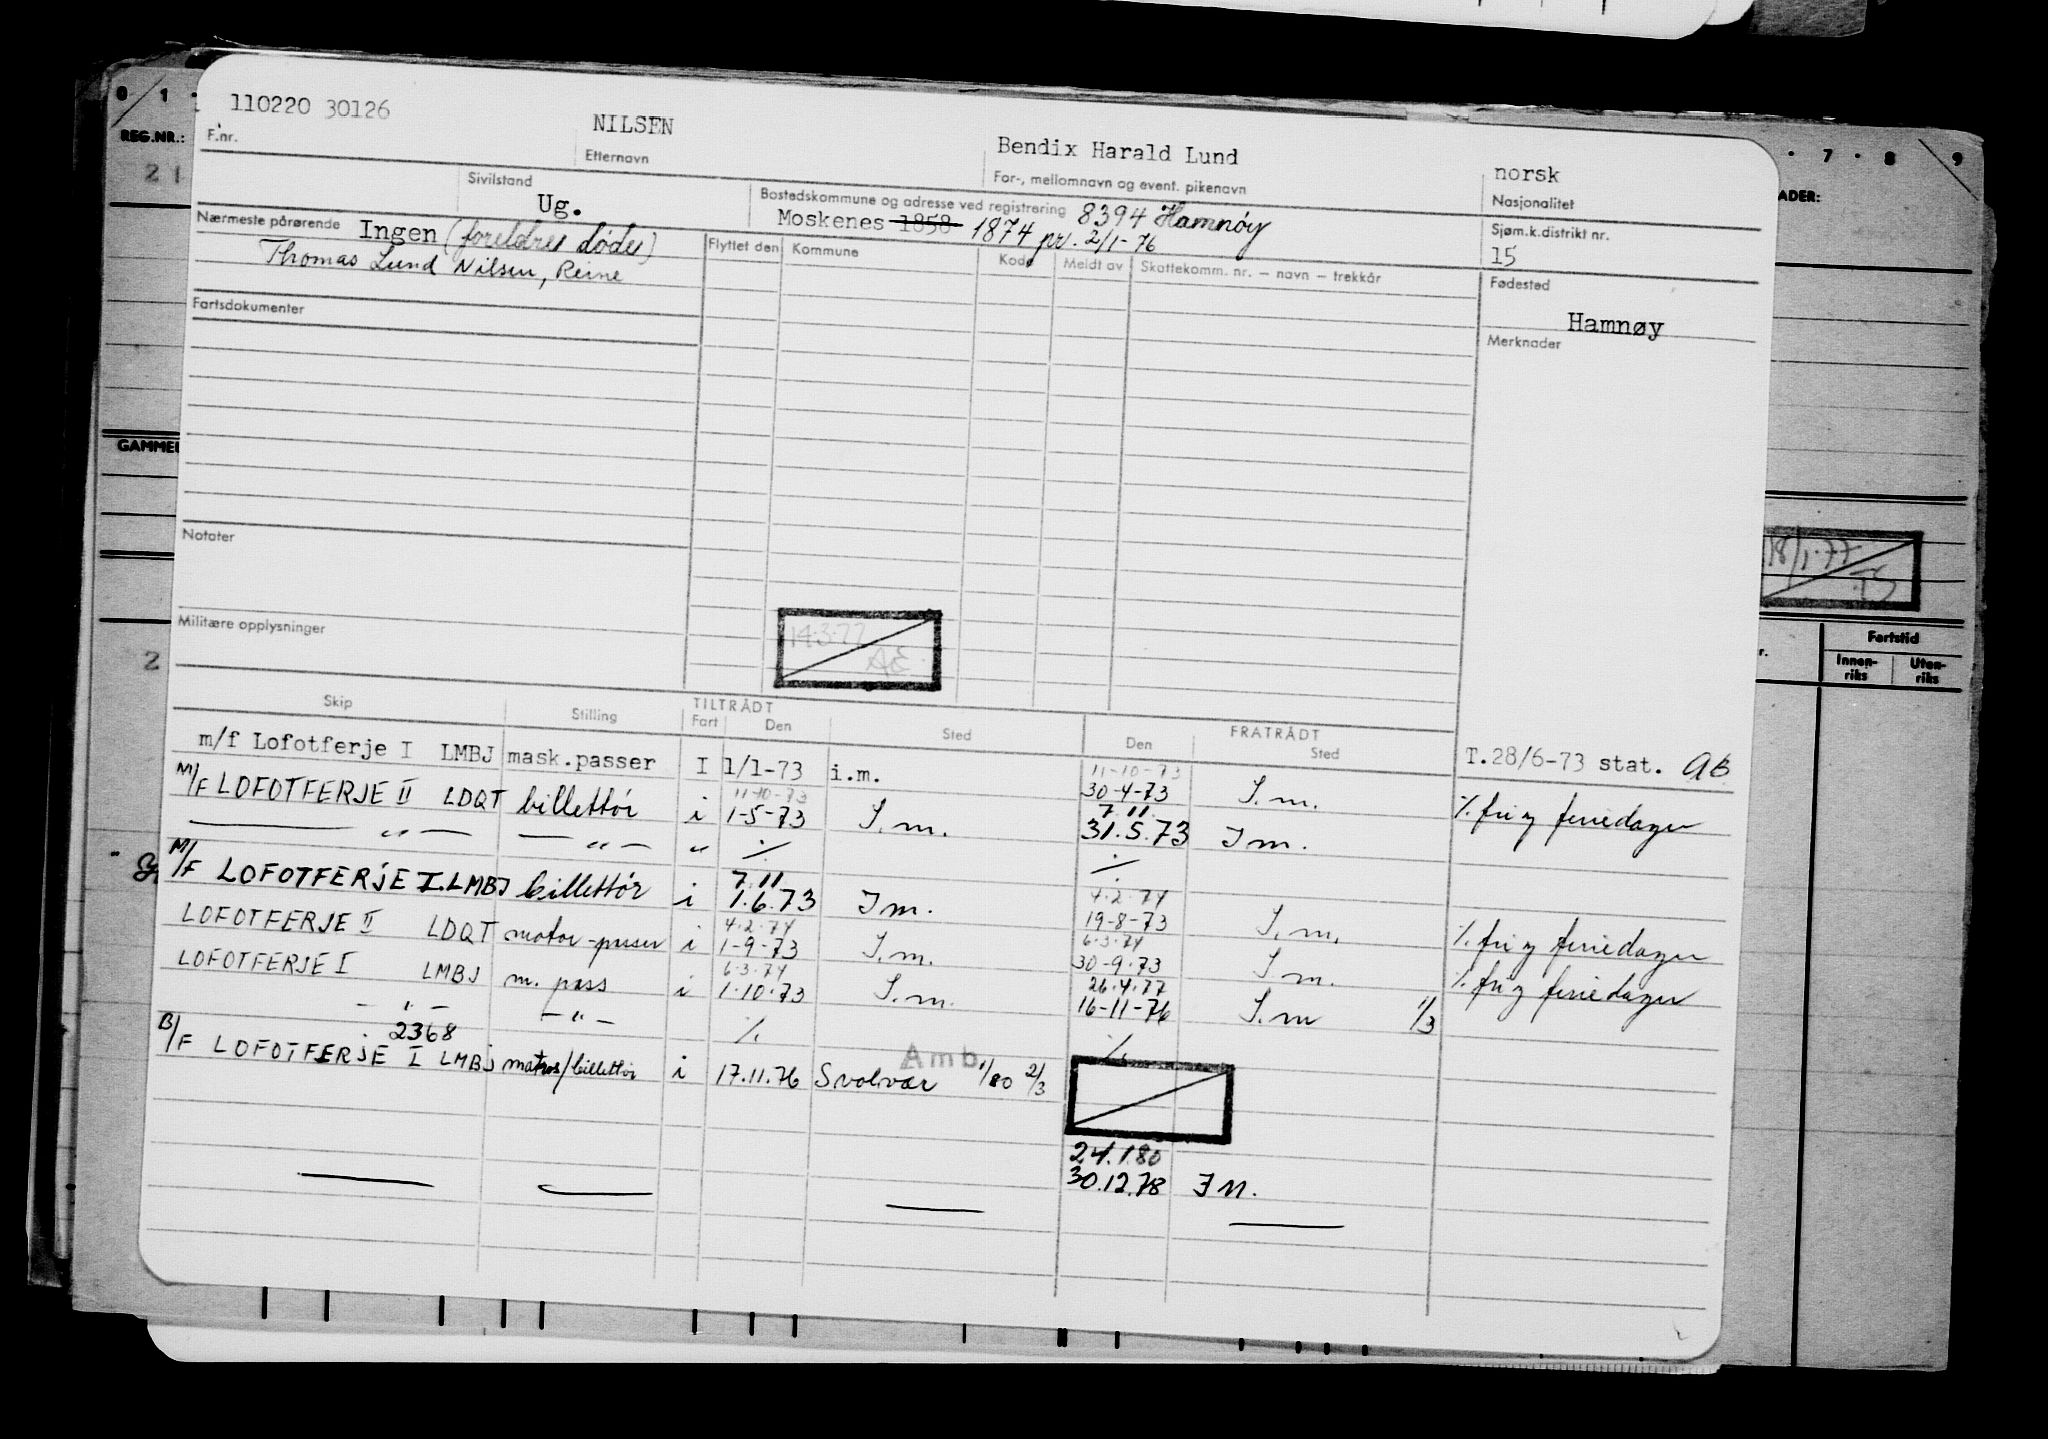 0 1 · 7 · 8 9
REG.NR.:
ADER:
2 1
110220 30126
NILSEN
Bendix Harald Lund
norsk
F.nr.
Etternavn
For-, mellomnavn og event. pikenavn
Nasjonalitet
Sivilstand
Ug.
Bostedskommune og adresse ved registrering
8394 Hamnøy
Moskenes 1858 1874 pr. 2/1-76
Sjøm.k.distrikt nr.
15
Nærmeste pårørende
Ingen (foreldres døde)
Thomas Lund Nilsen, Reine
Flyttet den
Kommune
Kode
Meldt av
Skattekomm. nr. – navn – trekkår
Fødested
Hamnøy
Fartsdokumenter
Merknader
GAMMEL
Notater
18/1-77
TS
Militære opplysninger
14.3.77
AE
2
Fartstid
Innen-riks
Uten-riks
Skip
Stilling
TILTRÅDT
Fart
Den
Sted
FRATRÅDT
Den
Sted
m/f Lofotferje I LMBJ mask.passer I 1/1-73 i.m. 11-10-73 T.28/6-73 stat. AB
30-4-73 I.m.
M/F LOFOTFERJE II LDQT billettør i 11-10-73 1-5-73 I.m. 7.11. 31.5.73 I m. ·/. fri og feriedager
— " — — " — " ·/. ·/.
M/F LOFOTFERJE I. LMBJ billettør i 7.11 1.6.73 I m. 4.2.74 19-8-73 I.m. ·/. fri og feriedager
LOFOTFERJE II LDQT motor-passer i 4.2.74 1-9-73 I.m. 6.3.74 30-9-73 I m. ·/. fri og feriedager
LOFOTFERJE I LMBJ m. pass i 6.3.74 1.10.73 I.m. 26.4.77 16-11-76 I.m 1/3
— " — — " — ·/. ·/.
2368
B/F LOFOTFERJE I LMBJ matros/billettør i 17.11.76 Svolvær Amb 1/80 2/3
24.1.80
30.12.78 I M.